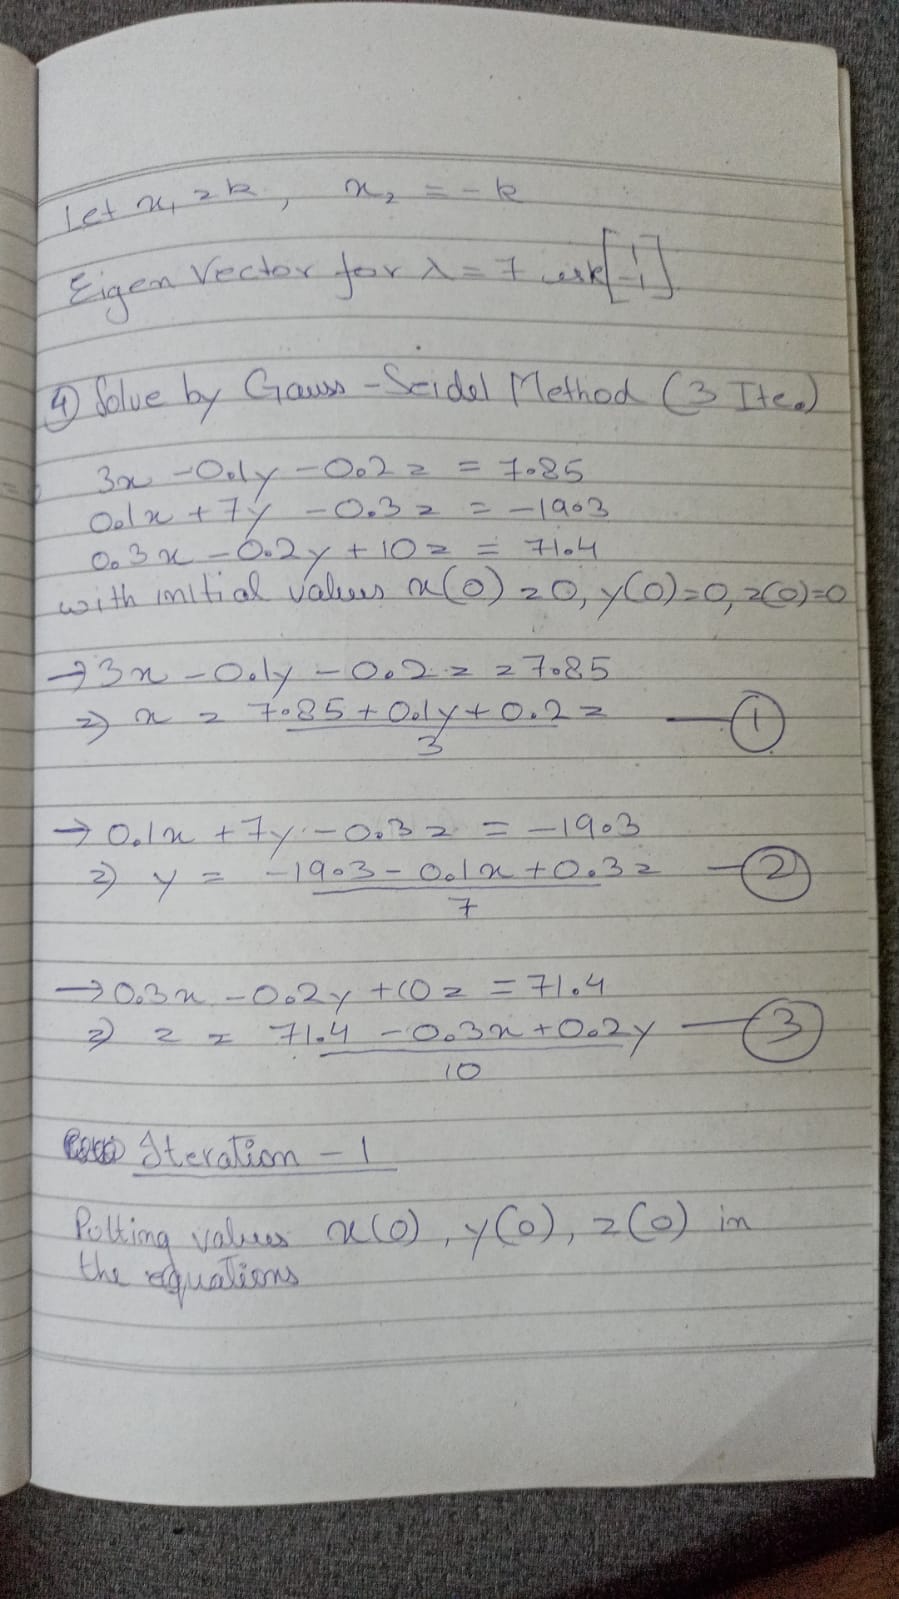 Let x₁ = k, x₂ = -k
Eigen Vector for λ = 7 is k[1 -1]
④ Solve by Gauss-Seidel Method (3 Ite.)
3x - 0.1y - 0.2z = 7.85
0.1x + 7y - 0.3z = -19.3
0.3x - 0.2y + 10z = 71.4
with initial values x(0) = 0, y(0) = 0, z(0) = 0
→ 3x - 0.1y - 0.2z = 7.85
⇒ x = 7.85 + 0.1y + 0.2z — ①
3
→ 0.1x + 7y - 0.3z = -19.3
⇒ y = -19.3 - 0.1x + 0.3z — ②
7
→ 0.3x - 0.2y + 10z = 71.4
⇒ z = 71.4 - 0.3x + 0.2y — ③
10
Iteration - 1
Putting values x(0), y(0), z(0) in
the equations